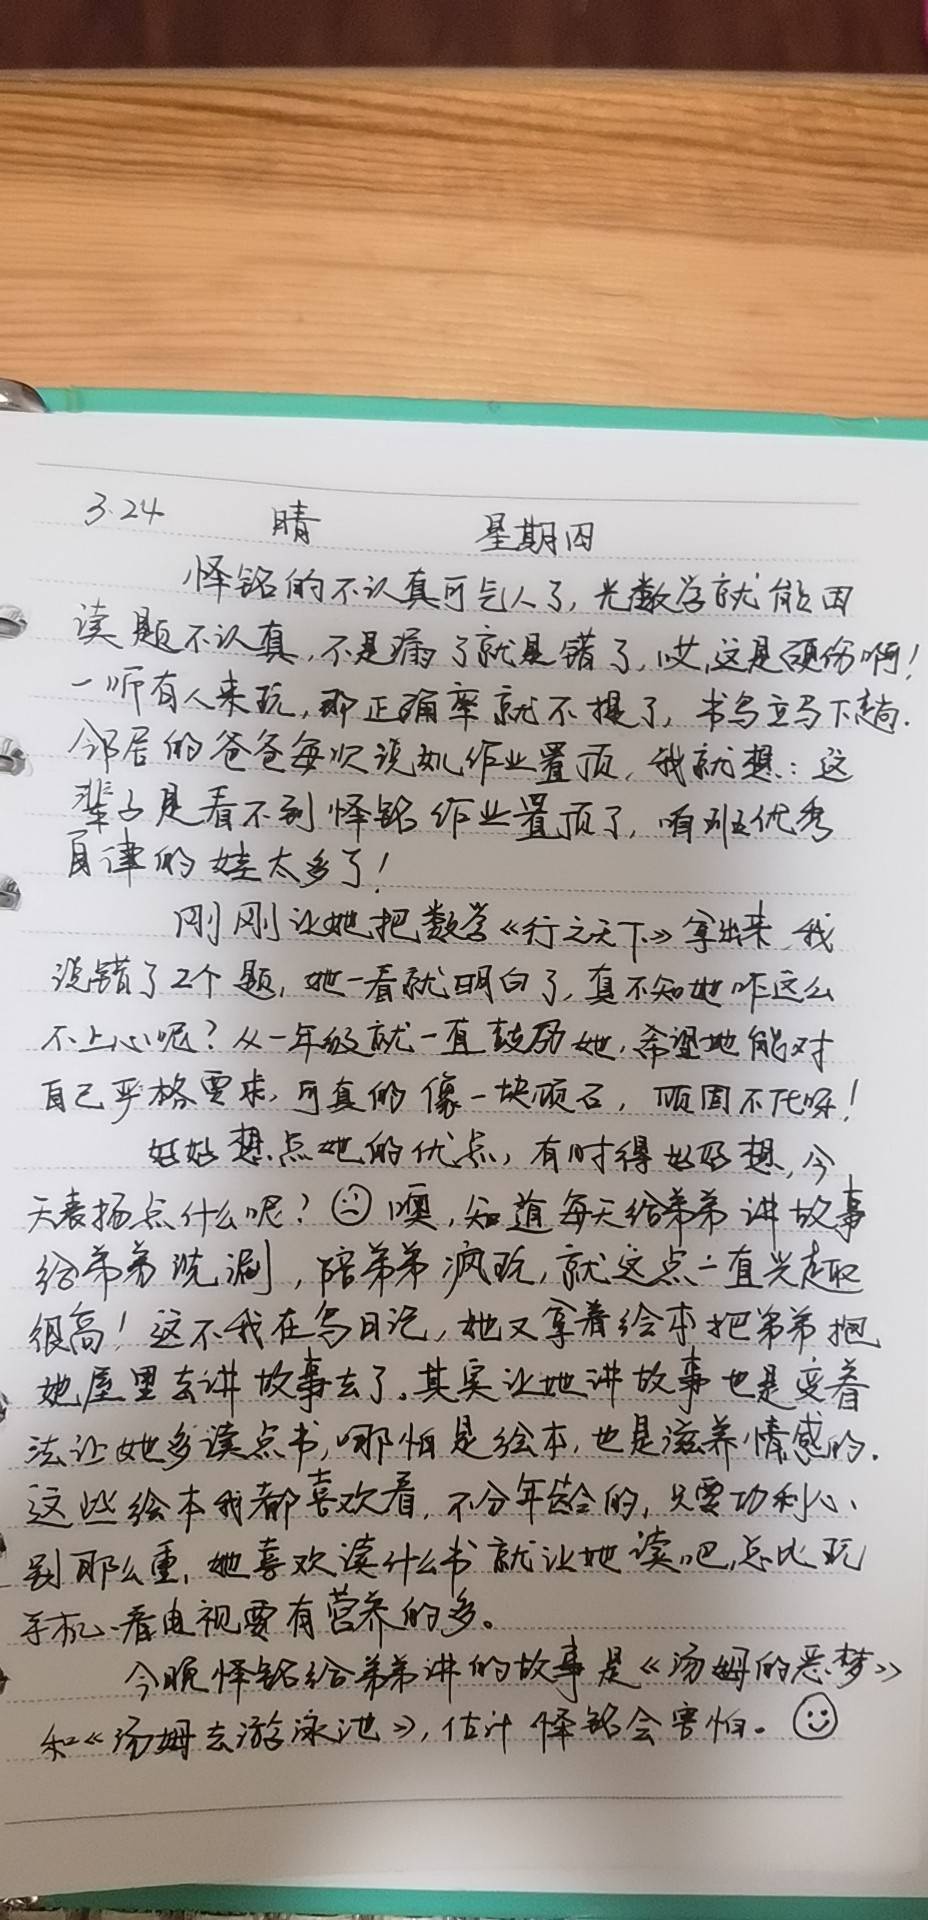 3.24 晴 星期四
怿铭的不认真可气人了,光数学就能因
读题不认真,不是漏了就是错了,哎,这是硬伤啊!
一听有人来玩,那正确率就不提了,书写立马下趟.
邻居的爸爸每次说她作业置顶,我就想:这
辈子是看不到怿铭作业置顶了,咱班优秀
自律的娃太多了!
刚刚让她把数学《行之天下》拿出来,我
说错了2个题,她一看就明白了,真不知她咋这么
不上心呢?从一年级就一直鼓励她,希望她能对
自己严格要求,可真的像一块顽石,顽固不化呀!
好好想点她的优点,有时得好好想,今
天表扬点什么呢?噢,知道每天给弟弟讲故事
给弟弟洗涮,陪弟弟疯玩,就这点一直兴趣
很高!这不我在写日记,她又拿着绘本把弟弟抱
她屋里去讲故事去了。其实让她讲故事也是变着
法让她多读点书,哪怕是绘本,也是滋养情感的.
这些绘本我都喜欢看,不分年龄的,只要功利心
别那么重,她喜欢读什么书就让她读吧,总比玩
手机、看电视要有营养的多。
今晚怿铭给弟弟讲的故事是《汤姆的恶梦》
和《汤姆去游泳池》,估计怿铭会害怕。